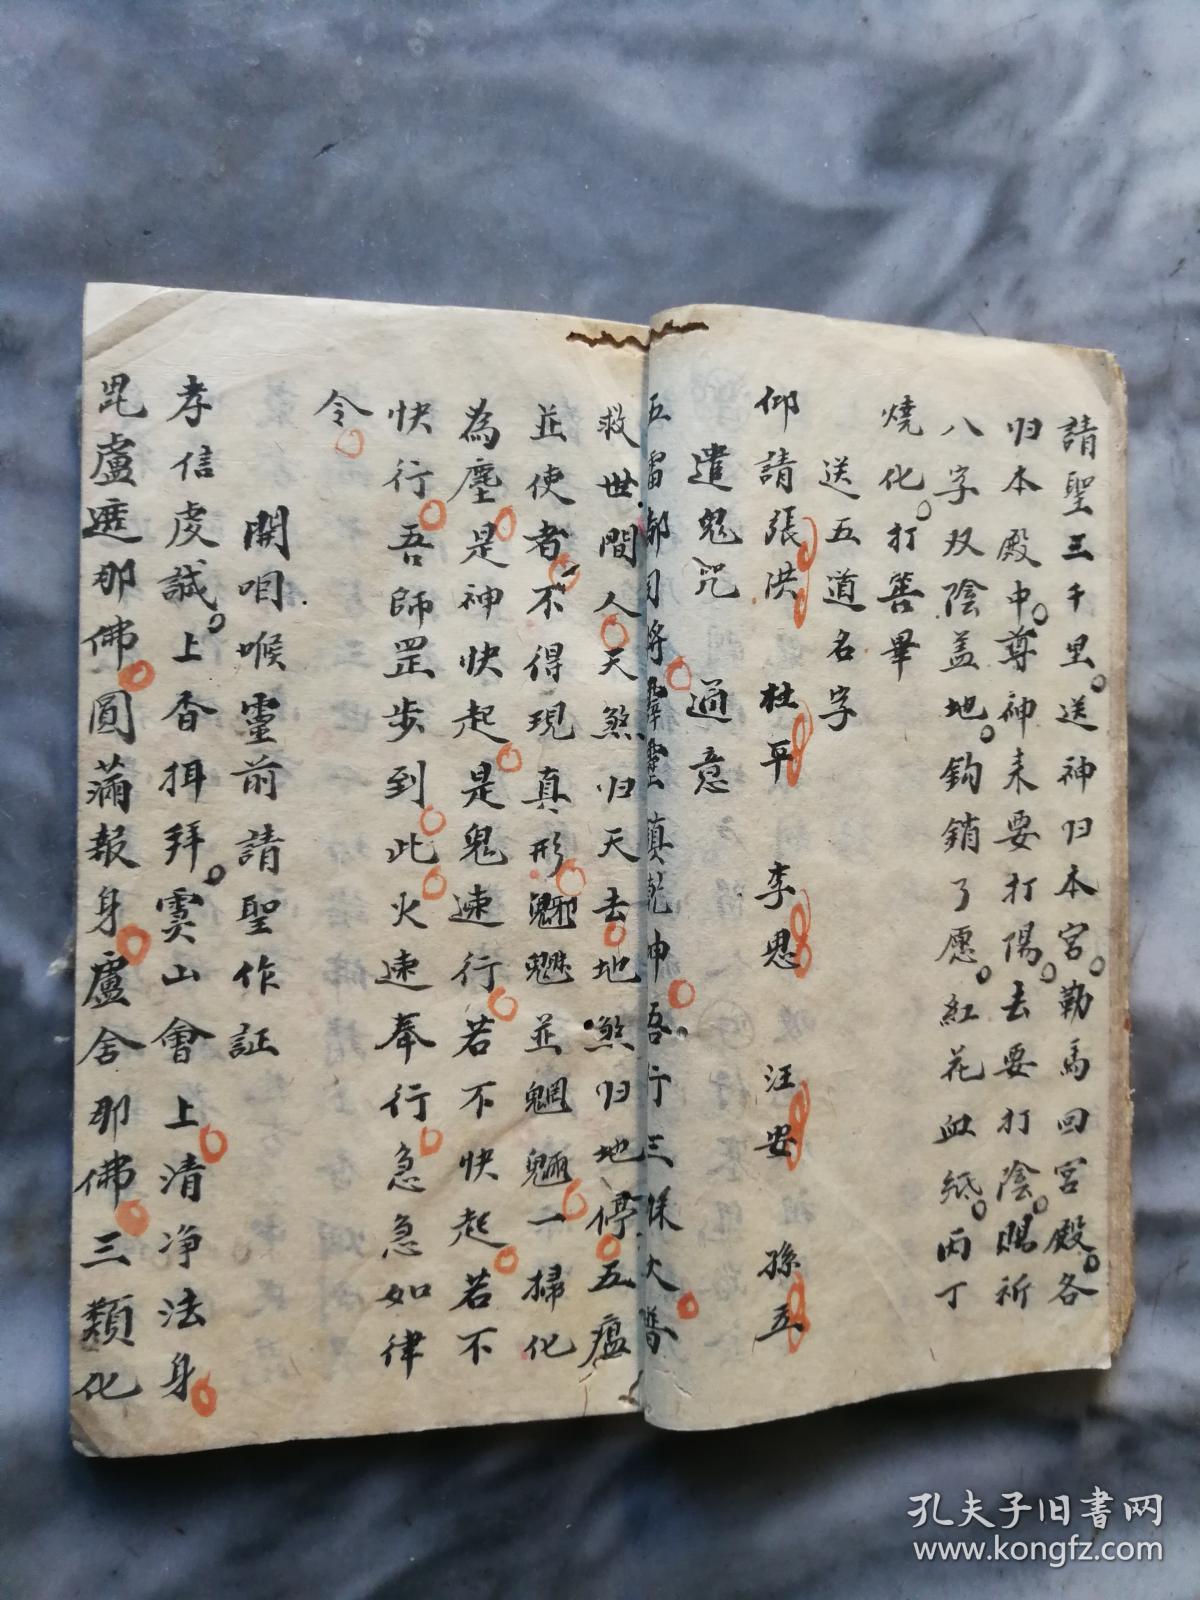 請聖三千里。送神归本宫。勒馬回宫殿。各
归本殿中。尊神来要打陽。去要打陰。賜祈
八字双陰盖地。鈎銷了愿。紅花血紙。丙丁
燒化。打筶畢
送五道名字
仰請張洪 杜平 李思 汪安 孫立
遣鬼咒 通意
五雷 司將 灵 真乾坤 吾行三 火
救世間人 天煞归天去 地煞归地停 五瘟
並使者 不得現真形 魑魅並魍魎 一掃化
為塵 是神快起 是鬼速行 若不快起 若不
快行 吾師罡步到此 火速奉行 急急如律
令
開咽喉靈前請聖作証
孝信虔誠。上香揖拜。灵山會上 清净法身
毘盧遮那佛 圓滿報身 盧舍那佛 三類化
孔夫子旧书网
www.kongfz.com